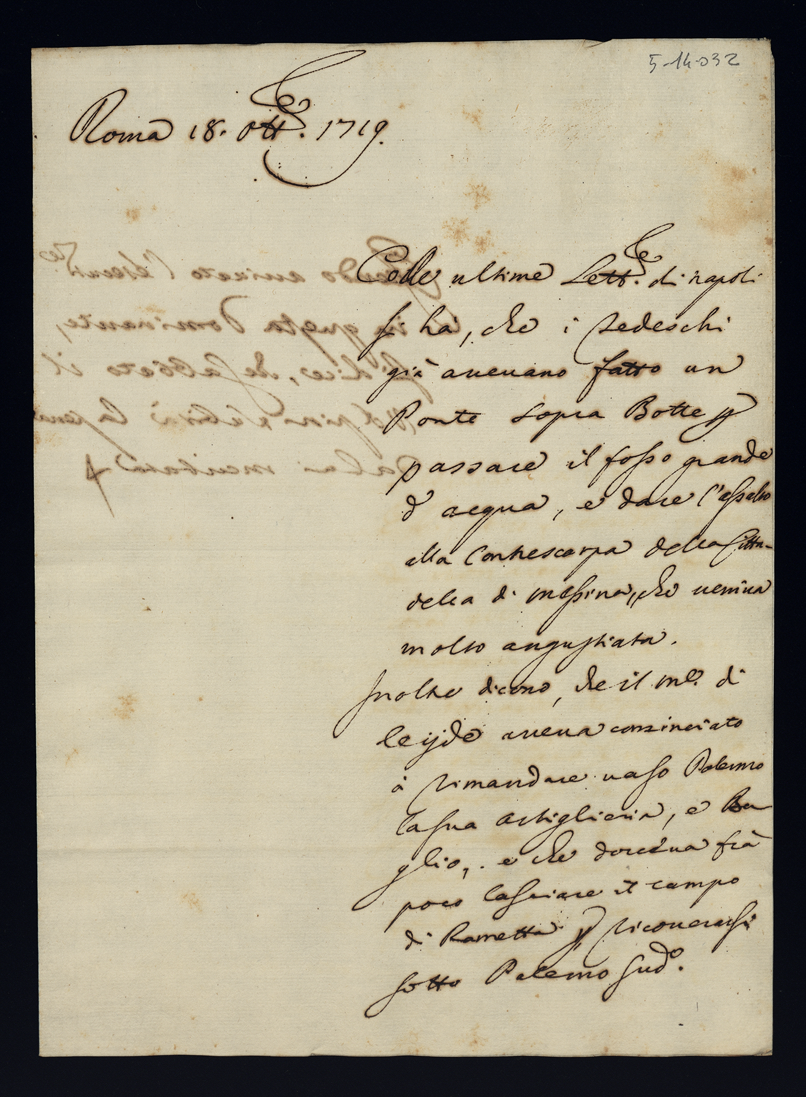 5-14-032
Roma 18. Ott.e 1719.
Colle ultime Lett.e di napoli
si ha, che i Tedeschi
già avevano fatto un
Ponte sopra Botte p
passare il fosso grande
d'acqua, e dare l'assalto
alla Contrescarpa della Citta-
della di messina, che veniva
molto angustiata.
Inoltre dicono, che il m.e di
leijde aveva cominciato
à rimandare verso Palermo
la sua Artiglieria, e Ba-
glio, e che doveva frà
poco lasciare il campo
di Rametta p ricoverarsi
sotto Palermo sud.o